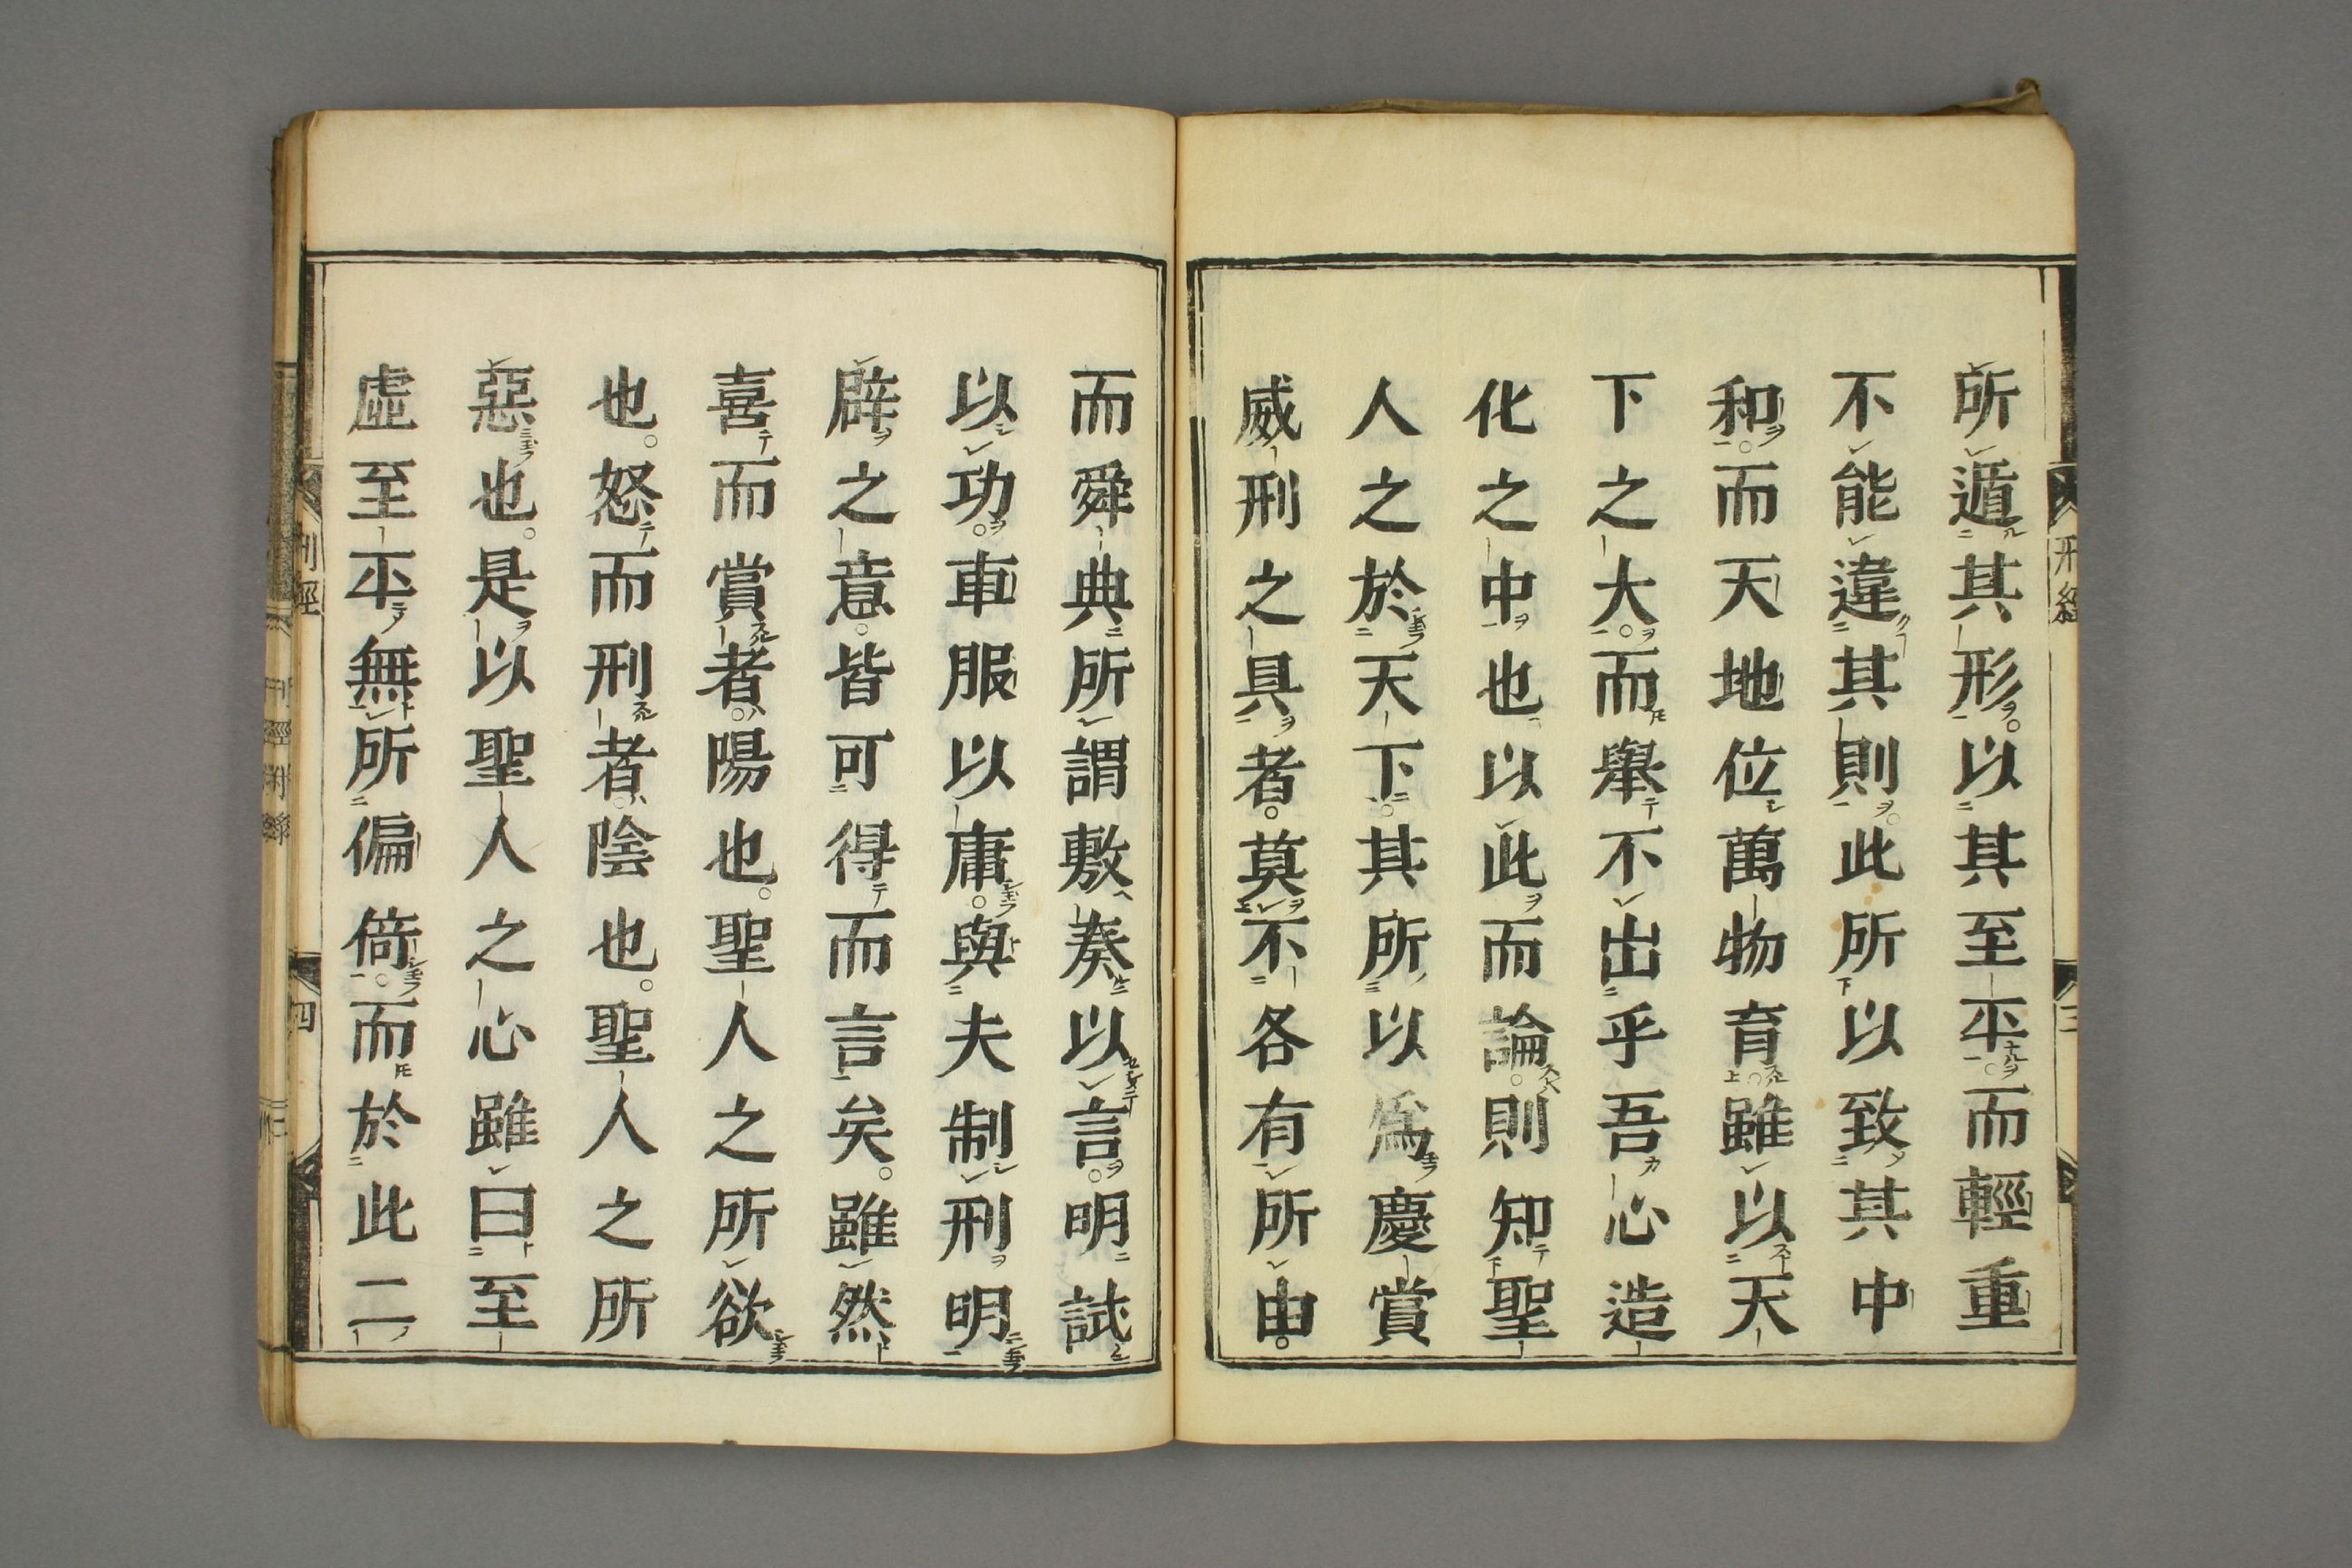 所遁其形。以其至平。而輕重
不能違其則。此所以致其中
和。而天地位萬物育。雖以天
下之大。而舉不出乎吾心造
化之中也以此而論。則知聖
人之於天下。其所以爲慶賞
威刑之具者。莫不各有所由。
而舜典所謂敷奏以言。明試
以功。車服以庸。與夫制刑明
辟之意。皆可得而言矣。雖然
喜而賞者。陽也。聖人之所欲
也。怒而刑者。陰也。聖人之所
惡也。是以聖人之心雖曰至
虛至平無所偏倚。而於此二
刑經
三
四